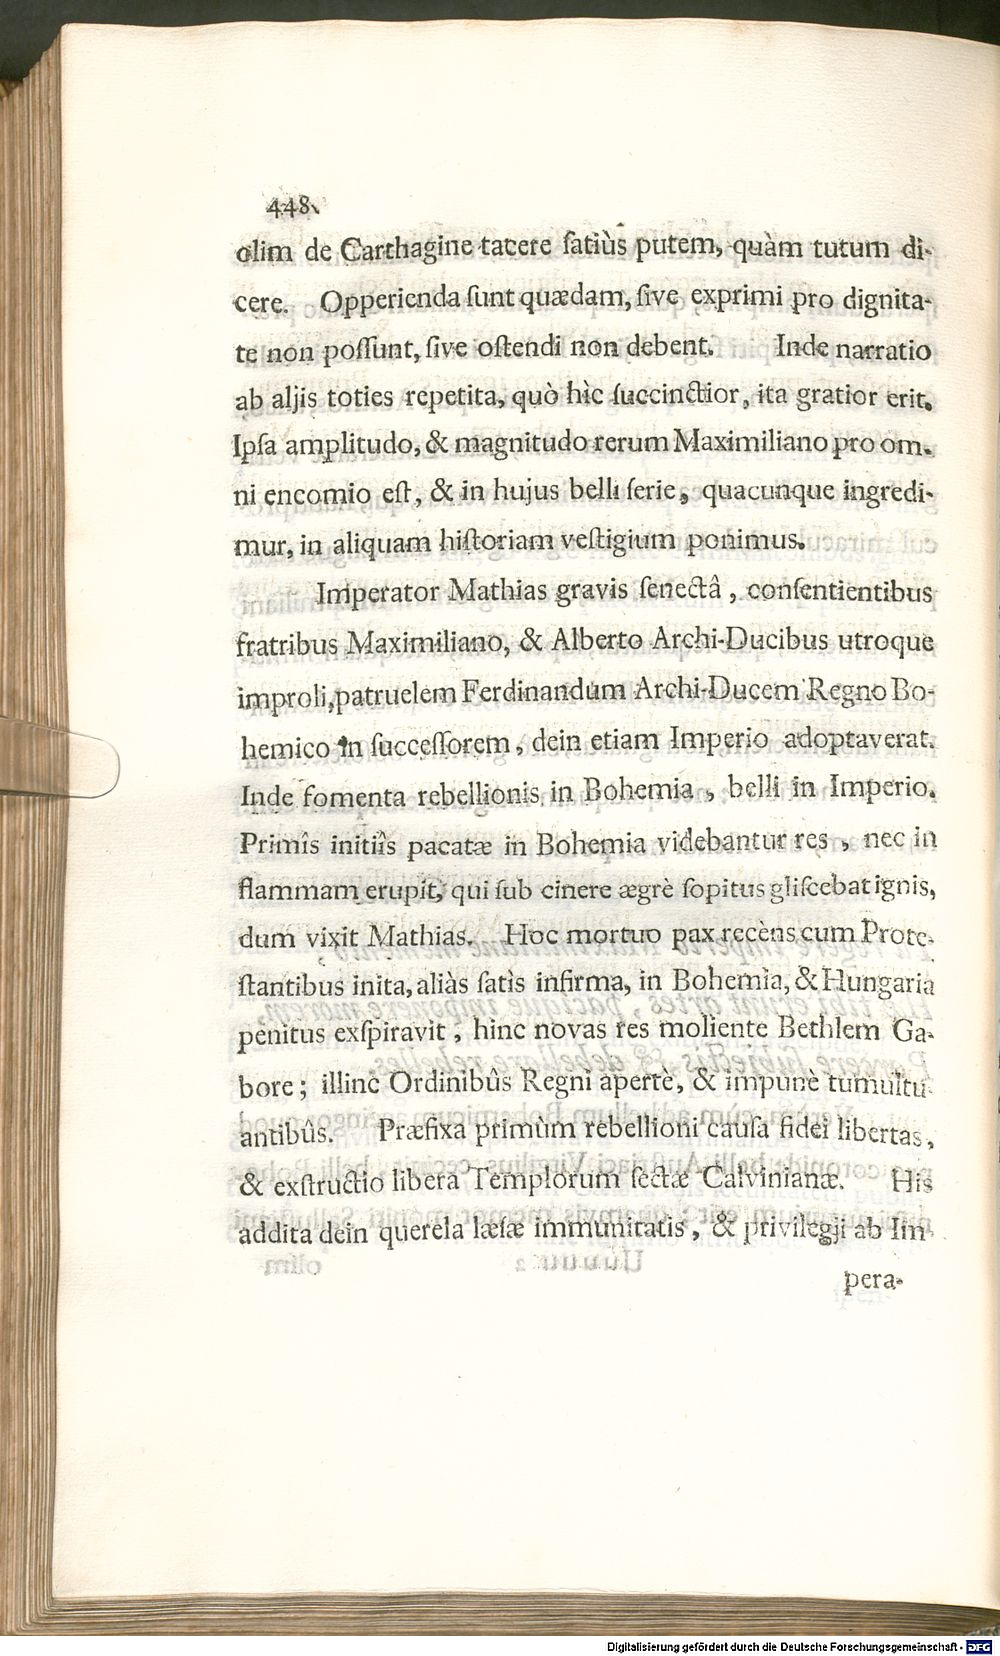 448.
olim de Carthagine tacere ſatiùs putem, quàm tutum di-
cere. Opperienda ſunt quædam, ſive exprimi pro dignita-
te non poſſunt, ſive oſtendi non debent. Inde narratio
ab aljis toties repetita, quò hìc ſuccinctior, ita gratior erit.
Ipſa amplitudo, & magnitudo rerum Maximiliano pro om-
ni encomio eſt, & in hujus belli ſerie, quacunque ingredi-
mur, in aliquam hiſtoriam veſtigium ponimus.
Imperator Mathias gravis ſenectâ, conſentientibus
fratribus Maximiliano, & Alberto Archi-Ducibus utroque
improli, patruelem Ferdinandum Archi-Ducem Regno Bo-
hemico in ſucceſſorem, dein etiam Imperio adoptaverat.
Inde fomenta rebellionis in Bohemia, belli in Imperio.
Primîs initiîs pacatæ in Bohemia videbantur res, nec in
flammam erupit, qui ſub cinere ægrè ſopitus gliſcebat ignis,
dum vixit Mathias. Hoc mortuo pax recèns cum Prote-
ſtantibus inita, aliàs ſatìs infirma, in Bohemia, & Hungaria
penitus exſpiravit, hinc novas res moliente Bethlem Ga-
bore; illinc Ordinibûs Regni apertè, & impunè tumultu-
antibûs. Præfixa primùm rebellioni cauſa fidei libertas,
& exſtructio libera Templorum ſectæ Calvinianæ. His
addita dein querela læſæ immunitatis, & privilegji ab Im-
pera-
Digitalisierung gefördert durch die Deutsche Forschungsgemeinschaft - DFG